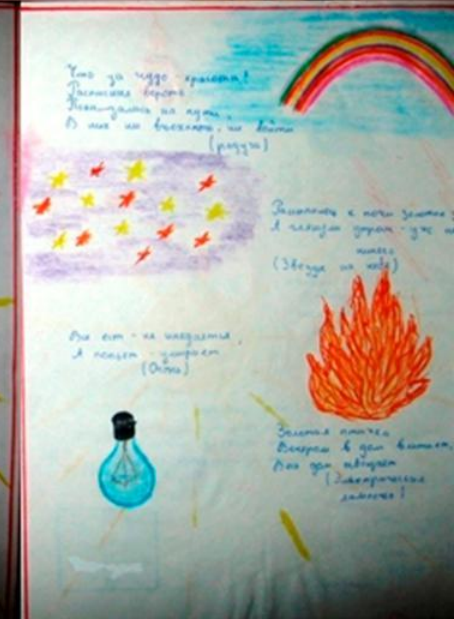 Что за чудо красота!
Расписные ворота
Показались на пути,
В них ни въехать, ни войти
(радуга)
Рассыпалось к ночи золотое
А глянешь утром - уж нет
ничего
(Звезды на небе)
Все ест - не наедается,
А попьет - умирает
(Огонь)
Золотая птичка
Вечером в дом влетает,
Весь дом освещает
(Электрическая
лампочка)